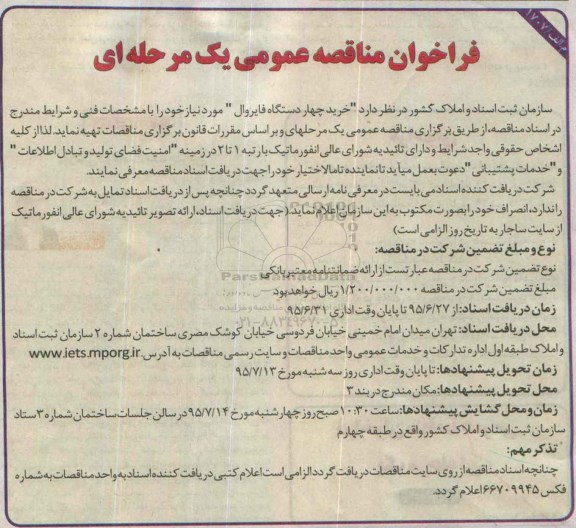 فراخوان مناقصه عمومی یک مرحله ای
سازمان ثبت اسناد و املاک کشور در نظر دارد "خرید چهار دستگاه فایروال" مورد نیاز خود را با مشخصات فنی و شرایط مندرج
در اسناد مناقصه، از طریق برگزاری مناقصه عمومی یک مرحله‌ای و بر اساس مقررات قانون برگزاری مناقصات تهیه نماید. لذا از کلیه
اشخاص حقوقی واجد شرایط و دارای تائیدیه شورای عالی انفورماتیک با رتبه ۱ تا ۲ در زمینه "امنیت فضای تولید و تبادل اطلاعات"
و "خدمات پشتیبانی" دعوت بعمل می‌آید تا نماینده تام‌الاختیار خود را جهت دریافت اسناد مناقصه معرفی نمایند.
شرکت دریافت کننده اسناد می بایست در معرفی نامه ارسالی متعهد گردد چنانچه پس از دریافت اسناد تمایل به شرکت در مناقصه
را ندارد، انصراف خود را بصورت مکتوب به این سازمان اعلام نماید (جهت دریافت اسناد، ارائه تصویر تائیدیه شورای عالی انفورماتیک
از سایت ساجار به تاریخ روز الزامی است)
نوع و مبلغ تضمین شرکت در مناقصه:
نوع تضمین شرکت در مناقصه عبارتست از ارائه ضمانتنامه معتبر بانکی
مبلغ تضمین شرکت در مناقصه ۱/۲۰۰/۰۰۰/۰۰۰ ریال خواهد بود
زمان دریافت اسناد: از ۹۵/۶/۲۷ تا پایان وقت اداری ۹۵/۶/۳۱
محل دریافت اسناد: تهران میدان امام خمینی خیابان فردوسی خیابان کوشک مصری ساختمان شماره ۲ سازمان ثبت اسناد
و املاک طبقه اول اداره تدارکات و خدمات عمومی واحد مناقصات و سایت رسمی مناقصات به آدرس www.iets.mporg.ir
زمان تحویل پیشنهادها: تا پایان وقت اداری روز سه شنبه مورخ ۹۵/۷/۱۳
محل تحویل پیشنهادها: مکان مندرج در بند ۳
زمان و محل گشایش پیشنهادها: ساعت ۱۰:۳۰ صبح روز چهارشنبه مورخ ۹۵/۷/۱۴ در سالن جلسات ساختمان شماره ۳ ستاد
سازمان ثبت اسناد و املاک کشور واقع در طبقه چهارم
تذکر مهم:
چنانچه اسناد مناقصه از روی سایت مناقصات دریافت گردد الزامی است اعلام کتبی دریافت کننده اسناد به واحد مناقصات به شماره
فکس ۶۶۷۰۹۹۴۵ اعلام گردد.